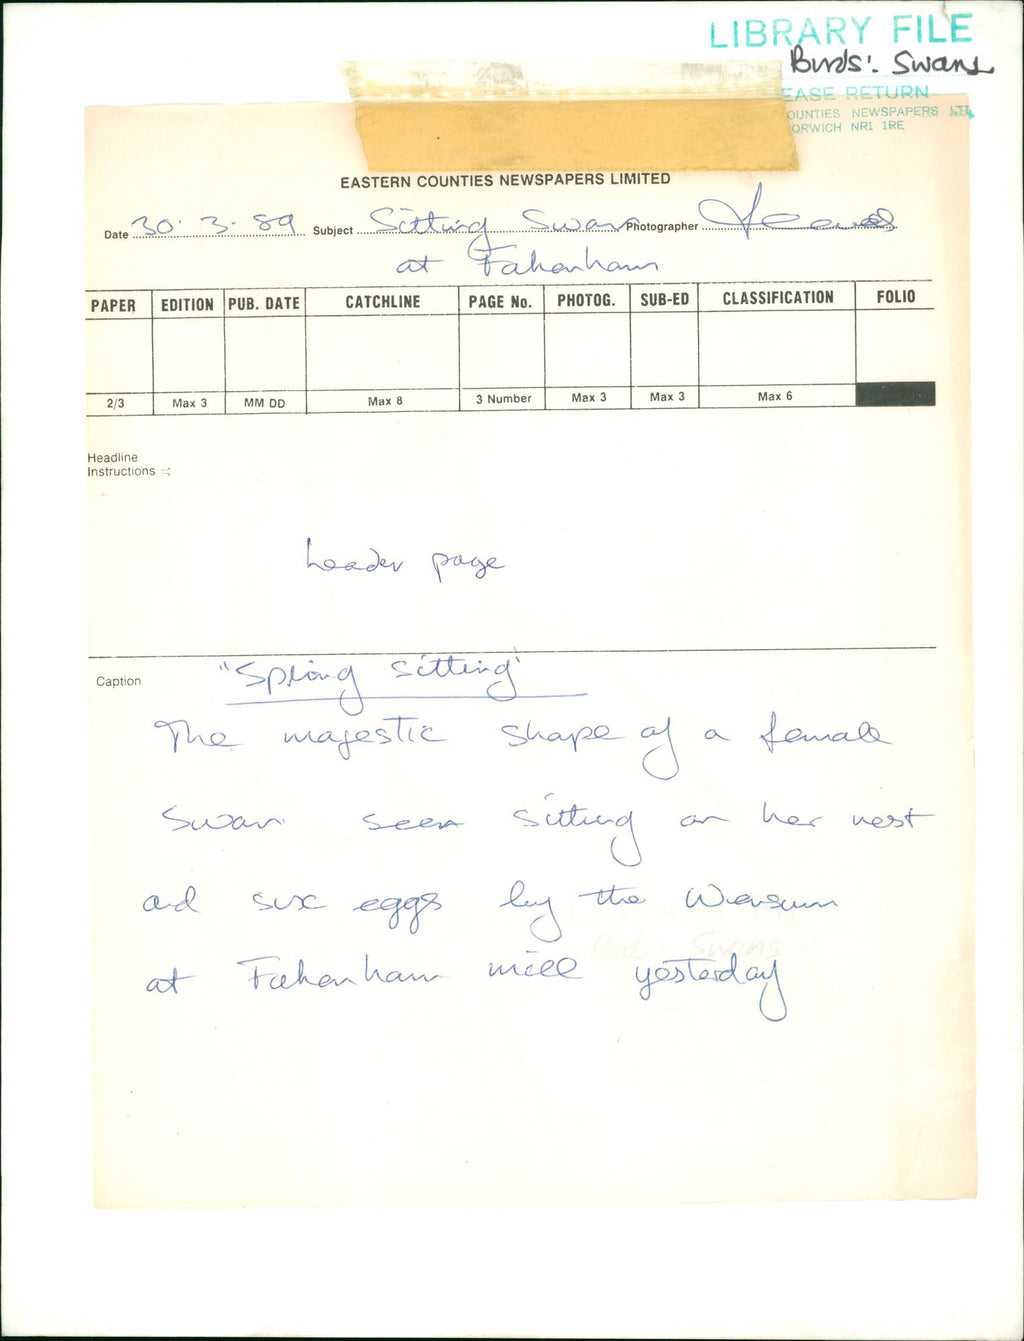 LIBRARY FILE
Birds: Swans
EASE RETURN
OUNTIES NEWSPAPERS LTD,
ORWICH NR1 1RE
EASTERN COUNTIES NEWSPAPERS LIMITED
Date 30.3.89 Subject Sitting Swan Photographer
at Fakenham
PAPER EDITION PUB. DATE CATCHLINE PAGE No. PHOTOG. SUB-ED CLASSIFICATION FOLIO
2/3 Max 3 MM DD Max 8 3 Number Max 3 Max 3 Max 6
Headline
Instructions
Leader page
Caption "Spring sitting"
The majestic shape of a female
Swan seen sitting on her nest
and six eggs by the Wensum
Birds - Swans
at Fakenham mill yesterday